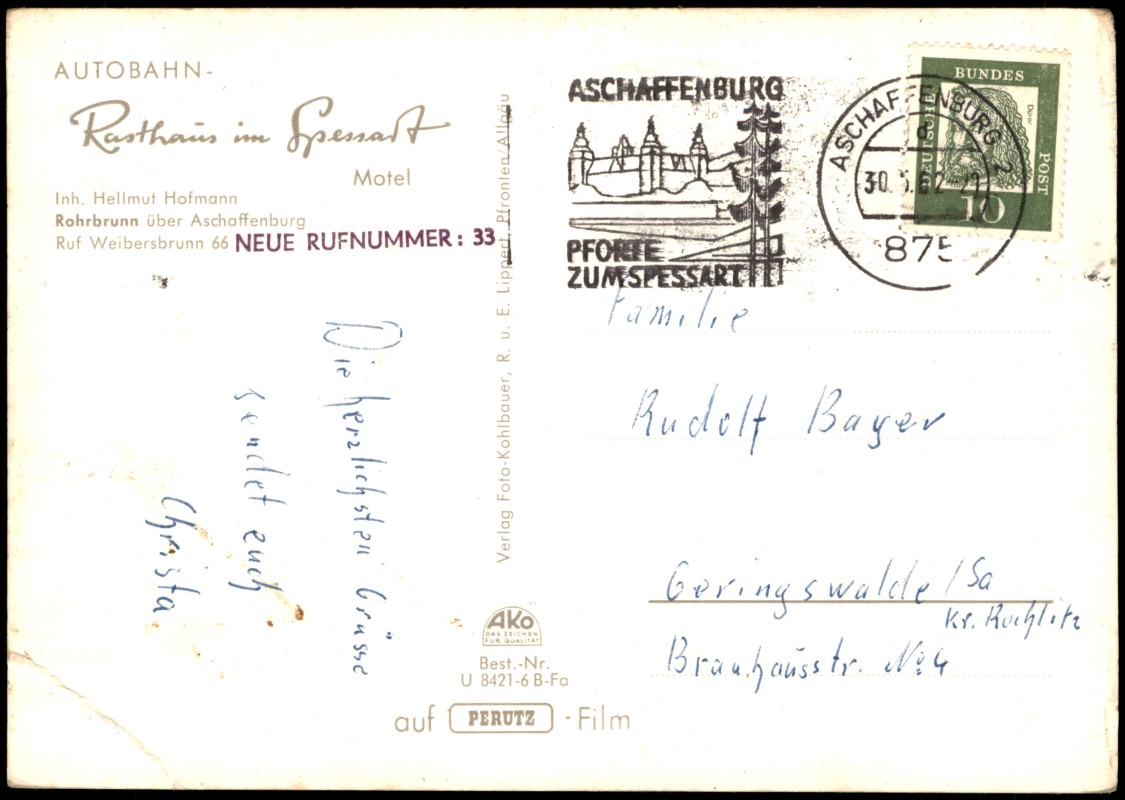 AUTOBAHN-
Rasthaus im Spessart
Motel
Inh. Hellmut Hofmann
Rohrbrunn über Aschaffenburg
Ruf Weibersbrunn 66 NEUE RUFNUMMER: 33
Die herzlichsten Grüsse
sendet euch
Christa
Verlag Foto-Kohlbauer, R. u. E. Lipperl, Pfronten/Allgäu
AKO
DAS ZEICHEN
FÜR QUALITÄT
Best.-Nr.
U 8421-6 B-Fa
auf PERUTZ -Film
ASCHAFFENBURG
PFORTE
ZUM SPESSART
ASCHAFFENBURG 2
d
875
DEUTSCHE
BUNDES
POST
Dürer
10
Familie
Rudolf Bayer
Geringswalde/Sa
Kr. Rochlitz
Brauhausstr. No 4